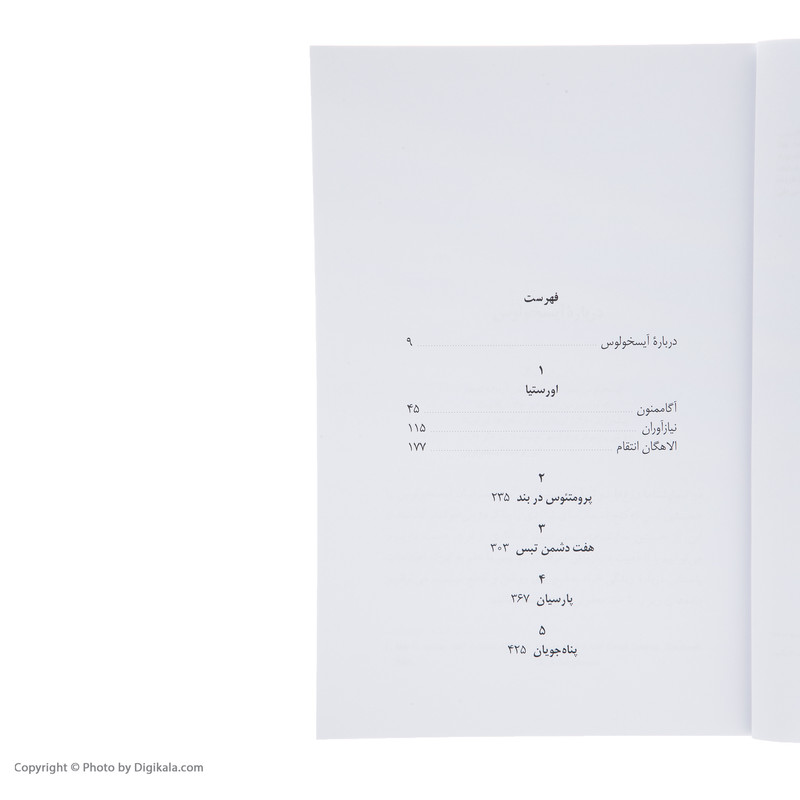 فهرست
دربارهٔ آیسخولوس ۹
۱
اورستیا
آگاممنون ۴۵
نیازآوران ۱۱۵
الاهگان انتقام ۱۷۷
۲
پرومتئوس در بند ۲۳۵
۳
هفت دشمن تبس ۳۰۳
۴
پارسیان ۳۶۷
۵
پناه‌جویان ۴۲۵
Copyright © Photo by Digikala.com